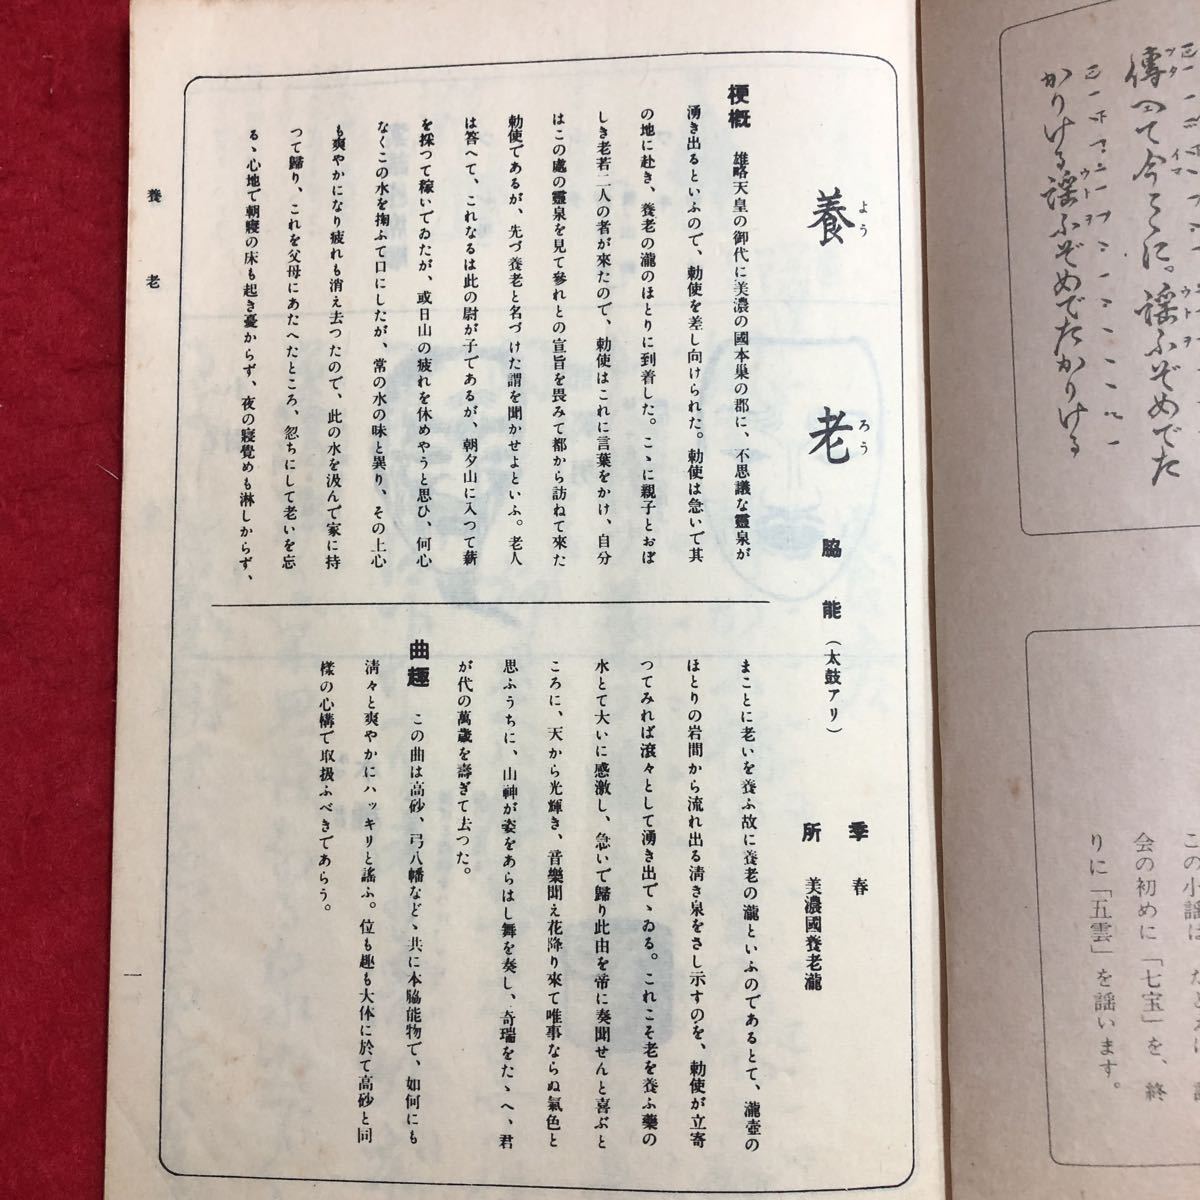 傳へて今こゝに。謡ふぞめでた
かりける謡ふぞめでたかりける
会の初めに「七宝」を、終
りに「五雲」を謡います。
養老
よう
ろう
脇能（太鼓アリ）
季　春
所　美濃國養老瀧
梗概　雄略天皇の御代に美濃の國本巣の郡に、不思議な靈泉が
湧き出るといふので、勅使を差し向けられた。勅使は急いで其
の地に赴き、養老の瀧のほとりに到着した。こゝに親子とおぼ
しき老若二人の者が來たので、勅使はこれに言葉をかけ、自分
はこの處の靈泉を見て參れとの宣旨を畏みて都から訪ねて來た
勅使であるが、先づ養老と名づけた謂を聞かせよといふ。老人
は答へて、これなるは此の尉が子であるが、朝夕山に入つて薪
を採つて稼いでゐたが、或日山の疲れを休めやうと思ひ、何心
なくこの水を掬ふて口にしたが、常の水の味と異り、その上心
も爽やかになり疲れも消え去つたので、此の水を汲んで家に持
つて歸り、これを父母にあたへたところ、忽ちにして老いを忘
るゝ心地で朝寢の床も起き憂からず、夜の寢覺めも淋しからず、
まことに老いを養ふ故に養老の瀧といふのであるとて、瀧壺の
ほとりの岩間から流れ出る淸き泉をさし示すのを、勅使が立寄
つてみれば滾々として湧き出でゝゐる。これこそ老を養ふ藥の
水とて大いに感激し、急いで歸り此由を帝に奏聞せんと喜ぶと
ころに、天から光輝き、音樂聞え花降り來て唯事ならぬ氣色と
思ふうちに、山神が姿をあらはし舞を奏し、奇瑞をたゝへ、君
が代の萬歲を壽ぎて去つた。
曲趣　この曲は高砂、弓八幡などゝ共に本脇能物で、如何にも
淸々と爽やかにハッキリと謠ふ。位も趣も大体に於て高砂と同
樣の心構で取扱ふべきであらう。
養老
一